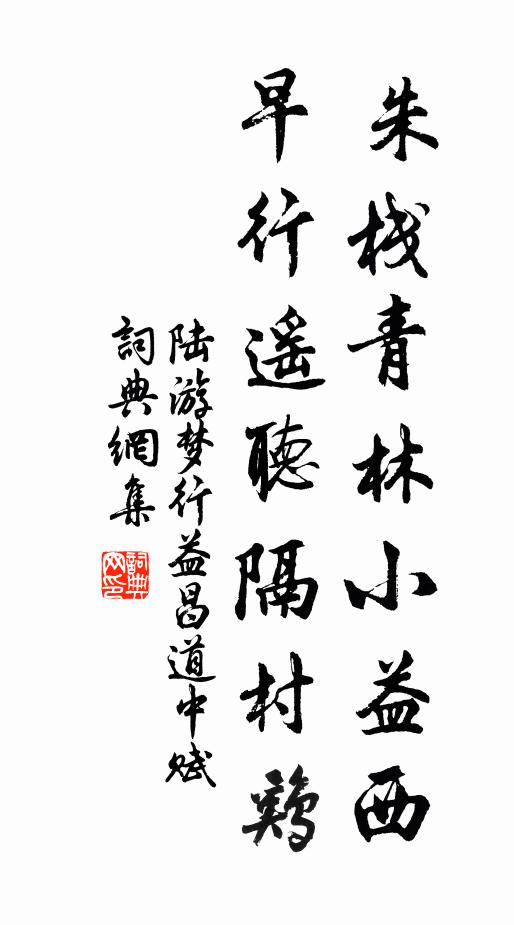 朱栈青林小益西
早行遥聽隔村鷄
陆游梦行益昌道中赋
詞典網集
詞典网印